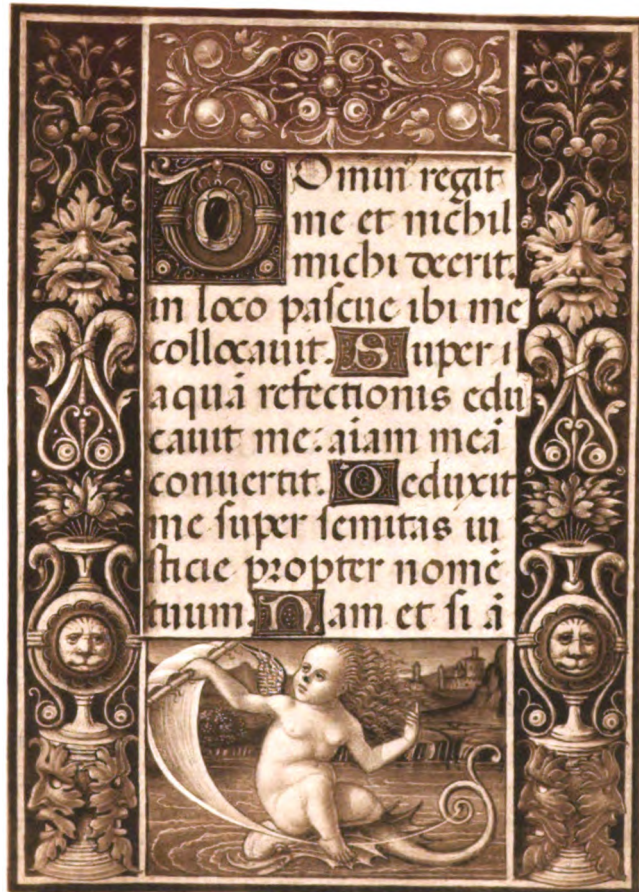 Domin regit
me et nichil
michi deerit.
in loco pascue ibi me
collocauit. Super i
aquā refectionis edu
cauit me: aīam meā
conuertit. Deduxit
me super semitas iu
sticie propter nomē
tuum. Nam et si ā